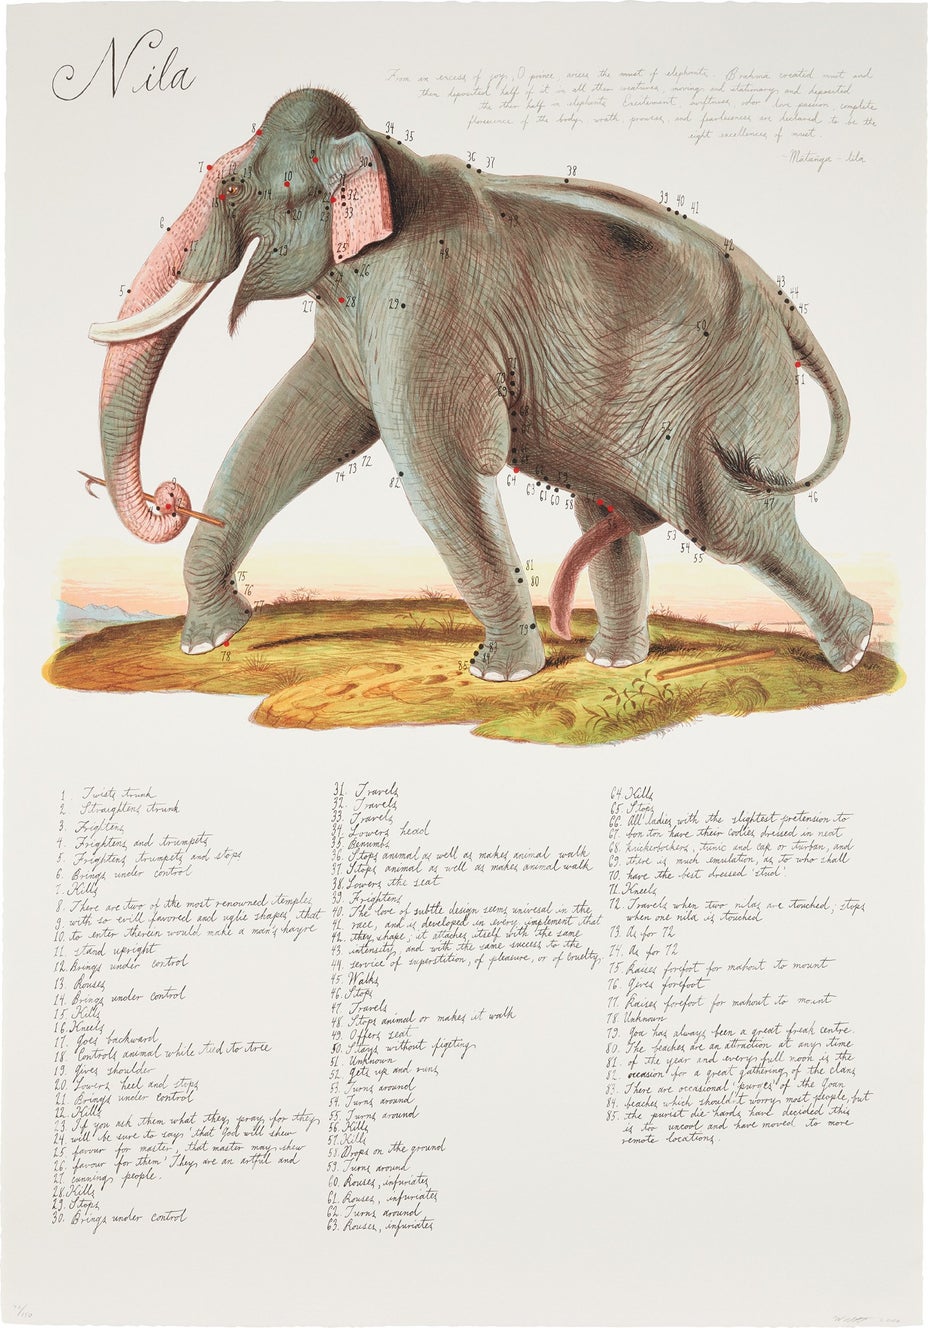 Nila
From an excess of joy, O prince, arises the must of elephants. Brahma created must and
then deposited half of it in all then creatures, moving and stationary and deposited
the other half in elephants. Excitement, swiftness, odor love passion, complete
florescence of the body, wrath, prowess, and fearlessness are declared to be the
eight excellences of must.
- Matanga - lila
1. Twists trunk
2. Straightens trunk
3. Frightens
4. Frightens and trumpets
5. Frightens trumpets and stops
6. Brings under control
7. Kills
8. There are two of the most renowned temples
9. with so evill favored and uglie shapes that
10. to enter therein would make a man's hayre
11. stand upright
12. Brings under control
13. Rouses
14. Brings under control
15. Kills
16. Kneels
17. Goes backward
18. Controls animal while tied to tree
19. Gives shoulder
20. Lowers heel and stops
21. Brings under control
22. Kills
23. If you ask them what they pray for they
24. will be sure to say 'that God will shew
25. favour for master, that master may shew
26. favour for them' They are an artful and
27. cunning people.
28. Kills
29. Stops
30. Brings under control
31. Travels
32. Travels
33. Travels
34. Lowers head
35. Benumbs
36. Stops animal as well as makes animal walk
37. Stops animal as well as makes animal walk
38. Lowers the seat
39. Frightens
40. The love of subtle design seems universal in the
41. race, and is developed in every implement that
42. they shape; it attaches itself with the same
43. intensity, and with the same success to the
44. service of superstition, of pleasure, or of cruelty.
45. Walks
46. Stops
47. Travels
48. Stops animal or makes it walk
49. Offers seat
50. Stays without figeting
51. Unknown
52. Gets up and runs
53. Turns around
54. Turns around
55. Turns around
56. Kills
57. Kills
58. Drops on the ground
59. Turns around
60. Rouses, infuriates
61. Rouses, infuriates
62. Turns around
63. Rouses, infuriates
64. Kills
65. Stops
66. All ladies with the slightest pretension to
67. bon ton have their coolies dressed in neat
68. knickerbockers, tunic and cap or turban, and
69. there is much emulation, as to who shall
70. have the best dressed 'stud'.
71. Kneels
72. Travels when two nilas are touched; stops
when one nila is touched
73. As for 72
74. As for 72
75. Raises forefoot for mahout to mount
76. Gives forefoot
77. Raises forefoot for mahout to mount
78. Unknown
79. Goa has always been a great freak centre.
80. The beaches are an attraction at any time
81. of the year and every full moon is the
82. occasion for a great gathering of the clans
83. There are occasional 'purges' of the Goan
84. beaches which shouldn't worry most people, but
85. the purist die-hards have decided this
is too uncool and have moved to more
remote locations.